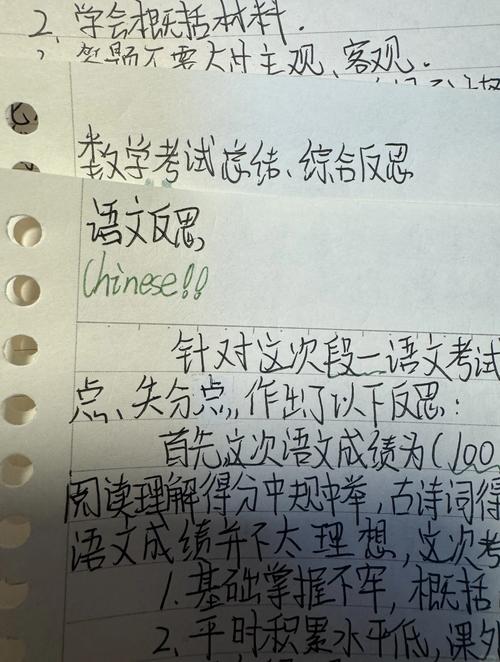 2、学会概括材料.
答题不要太过主观、客观.
数学考试总结、综合反思
语文反思
Chinese!!
针对这次段一语文考试
点、失分点,作出了以下反思:
首先这次语文成绩为(100
阅读理解得分中规中举,古诗词得
语文成绩并不太理想,这次考
1.基础掌握不牢,概括
2.平时积累水平低,课外